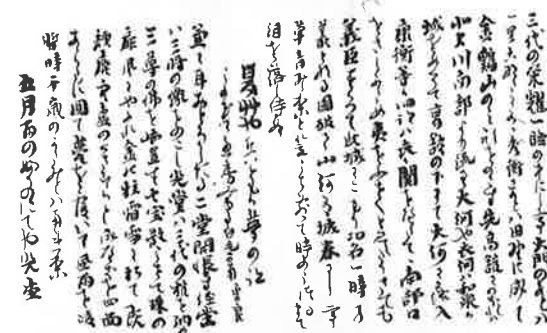 三代の栄耀一睡の中にして大門のあとハ
一里こなたに有秀衡か跡ハ田野に成て
金鶏山のミ形を残す先高舘にのほれハ
北上川南部より流るゝ大河也衣川ハ和泉か
城をめくりて高舘の下にて大河に落入
康衡等か旧跡ハ衣か関を隔て南部口
をさしかため夷をふせくとみえたり扨も
義臣すくつて此城にこもり功名一時の
叢となる国破れて山河あり城春にして
草青みたりと笠打敷て時のうつるまて
泪を落し侍りぬ
夏艸や兵ともか夢の跡
卯の花に兼房みゆる白毛かな 曽良
兼て耳驚したる二堂開帳す経堂
ハ三将の像をのこし光堂ハ三代の棺を納め
三尊の仏を安置す七宝散うせて珠の
扉風にやふれ金の柱霜雪に朽て既
頽廃空虚の叢となるへきを四面
新に囲て甍を覆て風雨を凌
暫時千歳の記念とハなれり
五月雨の降のこしてや光堂